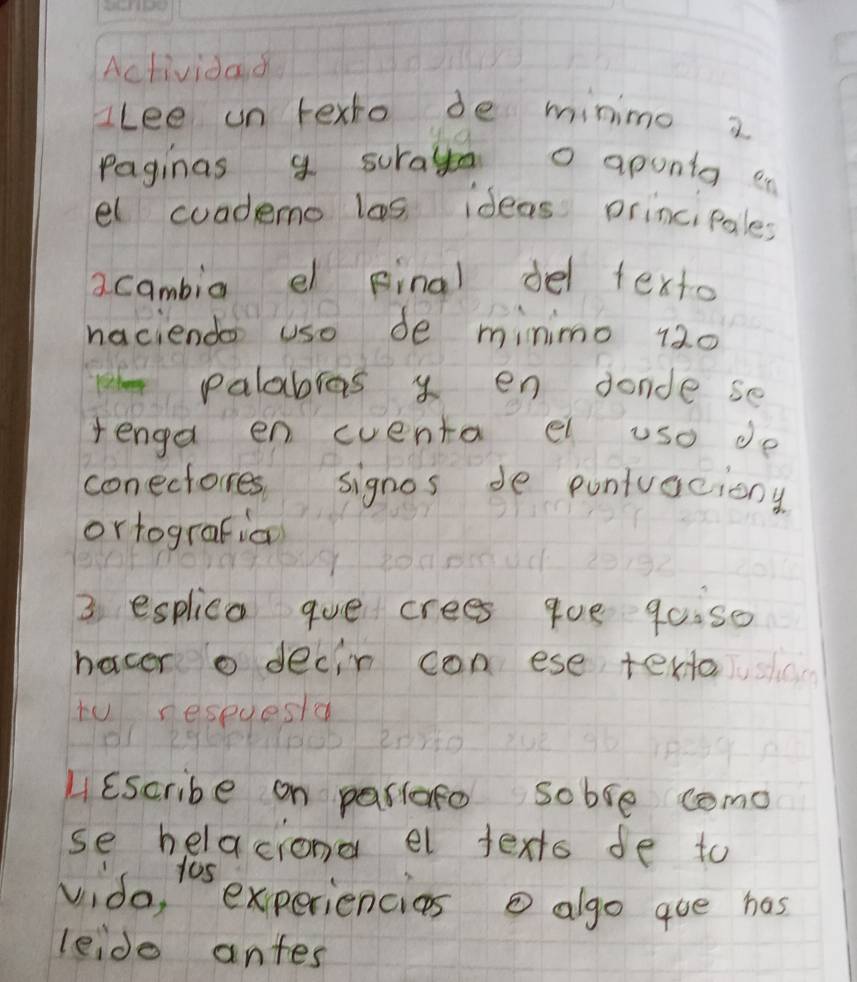 Actividad
1Lee un texto de minimo 2
Paginas y suraya o apunta en
el cuaderno las ideas principales
2cambia el final del texto
haciendo uso de minimo 120
palabras y en donde se
tenga en cuenta el uso de
conectores signos de puntuaciony
ortografia
3 esplica que crees que quiso
hacer o decir con ese texto Justifica
tu respuesta
4Escribe un parrafo sobre como
se helaciona el texto de tu
vida, tus experiencias o algo que has
leido antes